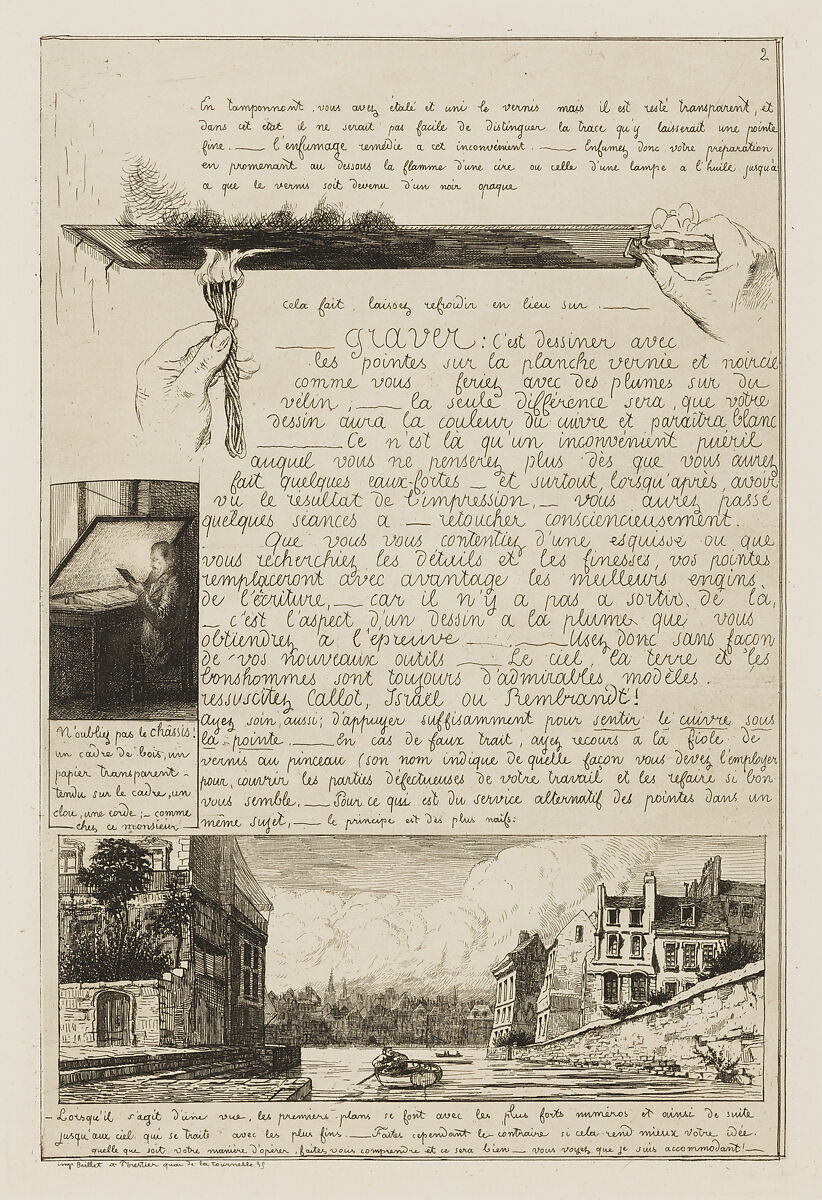 2
En tamponnant, vous avez étalé et uni le vernis mais il est resté transparent, et
dans cet état il ne serait pas facile de distinguer la trace qu'y laisserait une pointe
fine. — L'enfumage remédie à cet inconvénient. — Enfumez donc votre préparation
en promenant au dessous la flamme d'une cire ou celle d'une lampe a l'huile jusqu'à
ce que le vernis soit devenu d'un noir opaque
Cela fait, laissez refroidir en lieu sur. —
— Graver : C'est dessiner avec
les pointes sur la planche vernie et noircie
comme vous feriez avec des plumes sur du
vélin ; — la seule différence sera, que votre
dessin aura la couleur du cuivre et paraîtra blanc
— Ce n'est là qu'un inconvénient puéril
auquel vous ne penserez plus dès que vous aurez
fait quelques eaux-fortes — et surtout, lorsqu'après, avoir
vu le résultat de l'impression, — vous aurez passé
quelques séances a — retoucher consciencieusement.
Que vous vous contentiez d'une esquisse ou que
vous recherchiez les détails et les finesses, vos pointes
remplaceront avec avantage les meilleurs engins
de l'écriture, — car il n'y a pas a sortir de là,
— c'est l'aspect d'un dessin a la plume que vous
obtiendrez a l'épreuve — Usez donc sans façon
de vos nouveaux outils — Le ciel, la terre et les
bonshommes sont toujours d'admirables modèles.
ressuscitez Callot, Israël ou Rembrandt!
Ayez soin, aussi; d'appuyer suffisamment pour sentir le cuivre sous
la pointe. — En cas de faux trait, ayez recours a la fiole de
vernis au pinceau (son nom indique de quelle façon vous devez l'employer
pour, couvrir les parties défectueuses de votre travail et les refaire si bon
vous semble. — Pour ce qui est du service alternatif des pointes dans un
même sujet, — le principe est des plus naïfs:
N'oubliez pas le châssis!
un cadre de bois, un
papier transparent -
tendu sur le cadre, un
clou, une corde ; — comme
— chez ce monsieur —
— Lorsqu'il s'agit d'une vue, les premiers plans se font avec les plus forts numéros et ainsi de suite
jusqu'aux ciel qui se traite avec les plus fins. — Faites cependant le contraire si cela rend mieux votre idée.
quelle que soit votre manière d'opérer, faites vous comprendre et ce sera bien — vous voyez que je suis accommodant! —
imp Beillet a Forestier quai de la tournelle 35